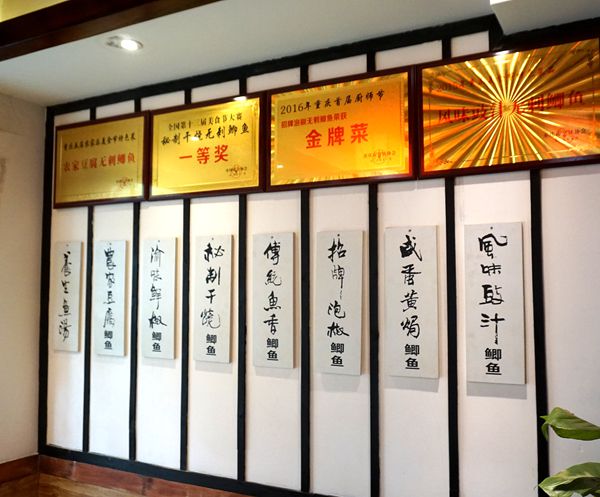 农家豆腐无刺鲫鱼
全国第十三届美食节大赛
秘制干烧无刺鲫鱼
一等奖
2016年重庆首届厨师节
招牌泡椒无刺鲫鱼荣获
金牌菜
风味豉汁无刺鲫鱼
養生鱼湯
農家豆腐鲫鱼
渝味鲜椒鲫鱼
秘制干烧鲫鱼
傳統魚香鲫鱼
招牌泡椒鲫鱼
咸蛋黄焗鲫鱼
風味豉汁鲫鱼